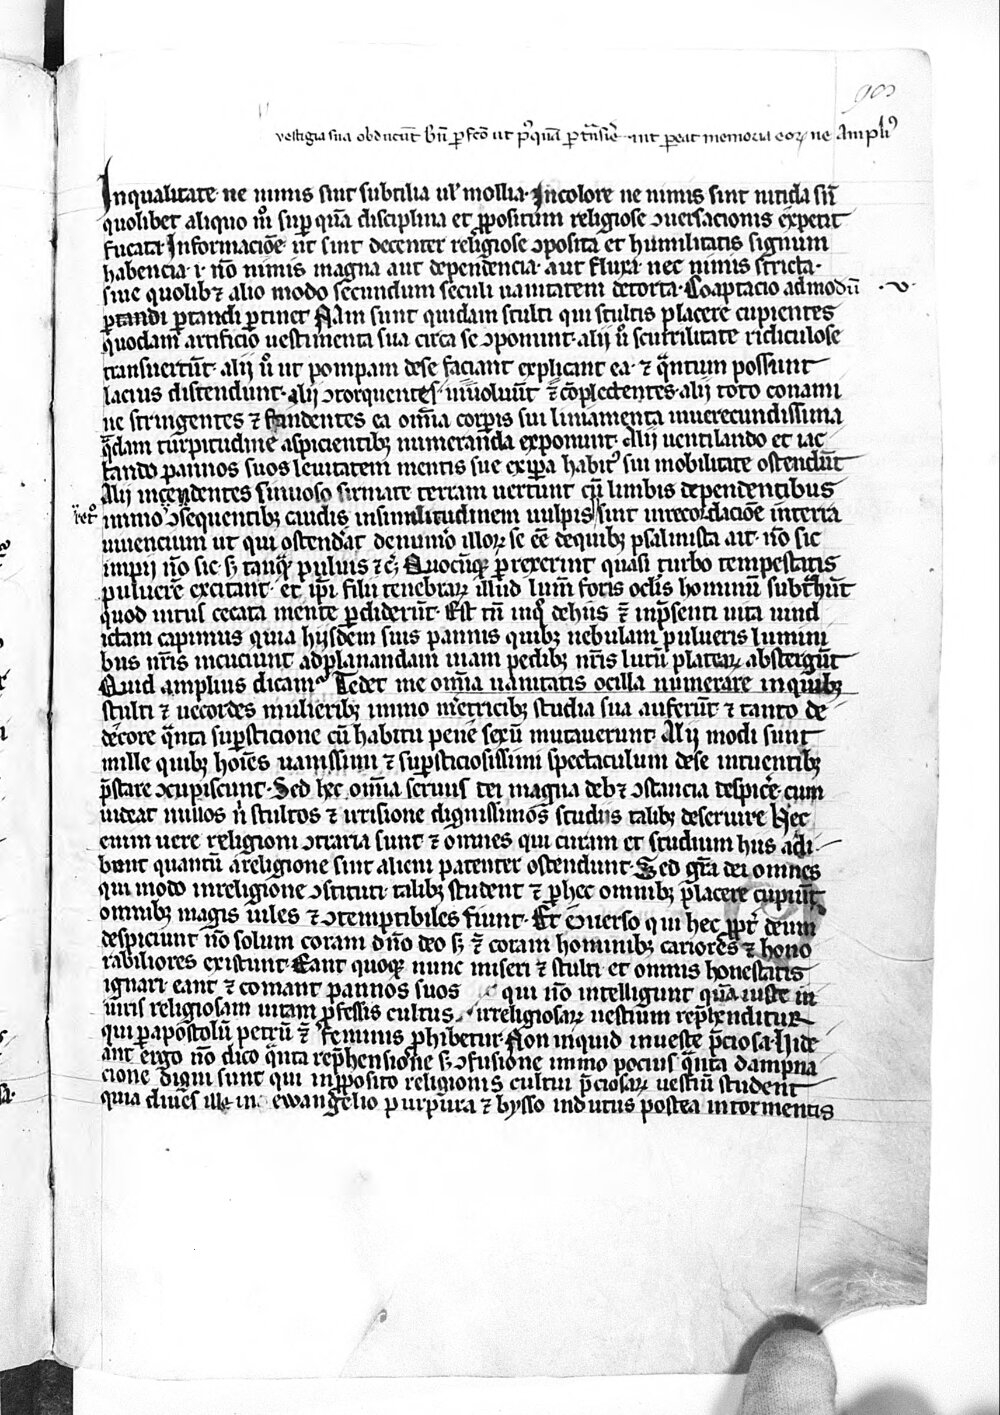 vestigia sua obducunt bn̄ ꝑfc̄o ut pꝰquā ꝑtrāsierīt int̄ ꝑeat memoria eoꝝ ne ampliꝰ
Inqualitate· ne nimis sint subtilia ul' mollia· Incolore ne nimis sint nitida sn̄
quolibet aliquo mͦ suꝑ quā disciplina et ꝓpositum religiose ↄuersacionis expetit
fucata· Informacioē ut sint decenter religiose ↄposita et humilitatis signum
habencia· i· nō nimis magna aut dependencia· aut fluxa nec nimis stricta·
siue quolibꝫ alio modo secundum seculi uanitatem detorta· Coaptacio admodū ·v·
ꝑtandi ꝑtandi ꝑtinet Nam sunt quidam stulti qui stultis placere cupientes
quodam artificio uestimenta sua circa se ↄponunt· alij ū scurrilitate ridiculose
transuertūt· alij ū ut pompam dese faciant explicant ea· ⁊ q̄ntum possunt
lacius distendunt· alij ↄtorquentes inuoluūt ⁊ cōplectentes· alij toto conami
ne stringentes ⁊ findentes ea omīa corꝑis sui liniamenta inuerecundissima
q̄dam turpitudine aspicientibꝫ numeranda exponunt· Alij uentilando et iac
tando pannos suos leuitatem mentis sue ex ipa habitꝰ sui mobilitate ostendūt
Alij incendentes sinuoso sirmate terram uertunt cū limbis dependentibus
immo ↄsequentibꝫ caudis insimilitudinem uulpis sunt inrecordacioē interia
uiuencium ut qui ostendāt denumͦo illoꝝ se eē dequibꝫ psalmista ait· nō sic
impij nō sic· sꝫ tanqͣ puluis ⁊ cͨ· Quocūqꝫ ꝑrexerint quasi turbo tempestatis
puluerē excitant· et ipi filij tenebraꝝ illud lum̄ foris oclis hominū subtͣhūt
quod intus cecata mente ꝑdiderūt· Est tn̄ inqͦ dehijs ⁊ inp̄senti uita uind
ictam capimus quia hijsdem suis pannis quibꝫ nebulam pulueris lumini
bus nr̄is incuciunt adplanandam uiam pedibꝫ nr̄is lutū plateaꝝ abstergūt
Quid amplius dicamꝰ Tedet me omīa uanitatis ocilla numerare inquibꝫ
stulti ⁊ uecordes mulieribꝫ immo mͤetricibꝫ studia sua auferūt ⁊ tanto de
decore q̄nta suꝑsticione cū habitu pene sexū mutauerunt· Alij modi sunt
mille quibꝫ hoīes uanissimi ⁊ suꝑsticiosissimi spectaculum dese intuentibꝫ
p̄stare ↄcupiscunt· Sed hec omīa seruus dei magna debꝫ ⁊ ↄstancia despicͤe· cum
uideat nullos nͥ stultos ⁊ irrisione dignissimos studijs talibꝫ deseruire Hec
enim uere religioni ↄtraria sunt ⁊ omnes qui curam et studium hus adi
bent quantū areligione sint alieni patenter ostendunt· Sed gr̄a dei omnes
qui modo inreligione ↄstituti talibꝫ student ⁊ ꝑhec omnibꝫ placere cupiūt
omnibꝫ magis uiles ⁊ ↄtemptibiles fiunt· Et ecōuerso qui hec ꝓpt̄ deum
despiciunt nō solum coram dn̄o deo sꝫ ⁊ coram hominibꝫ cariores ⁊ hono
rabiliores existunt· Eant quoqꝫ nunc miseri ⁊ stulti et omnis honestatis
ignari· eant ⁊ comant pannos suos qui nō intelligunt quā iuste in
uiris religiosam uitam ꝓfessis cultus irreligiosaꝝ uestium rep̄henditur
qui ꝑapostolū petrū ⁊ feminis ꝓhibetur· Non inquid inueste p̄ciosa· Hide
ant ergo nō dico q̄nta rep̄hensione sꝫ ↄfusione immo pocius q̄nta dampna
cione digni sunt qui inꝓposito religionis cultui p̄ciosaꝝ uestiū student
quia diues ille in ewangelio purpura ⁊ bysso indutus postea intormentis